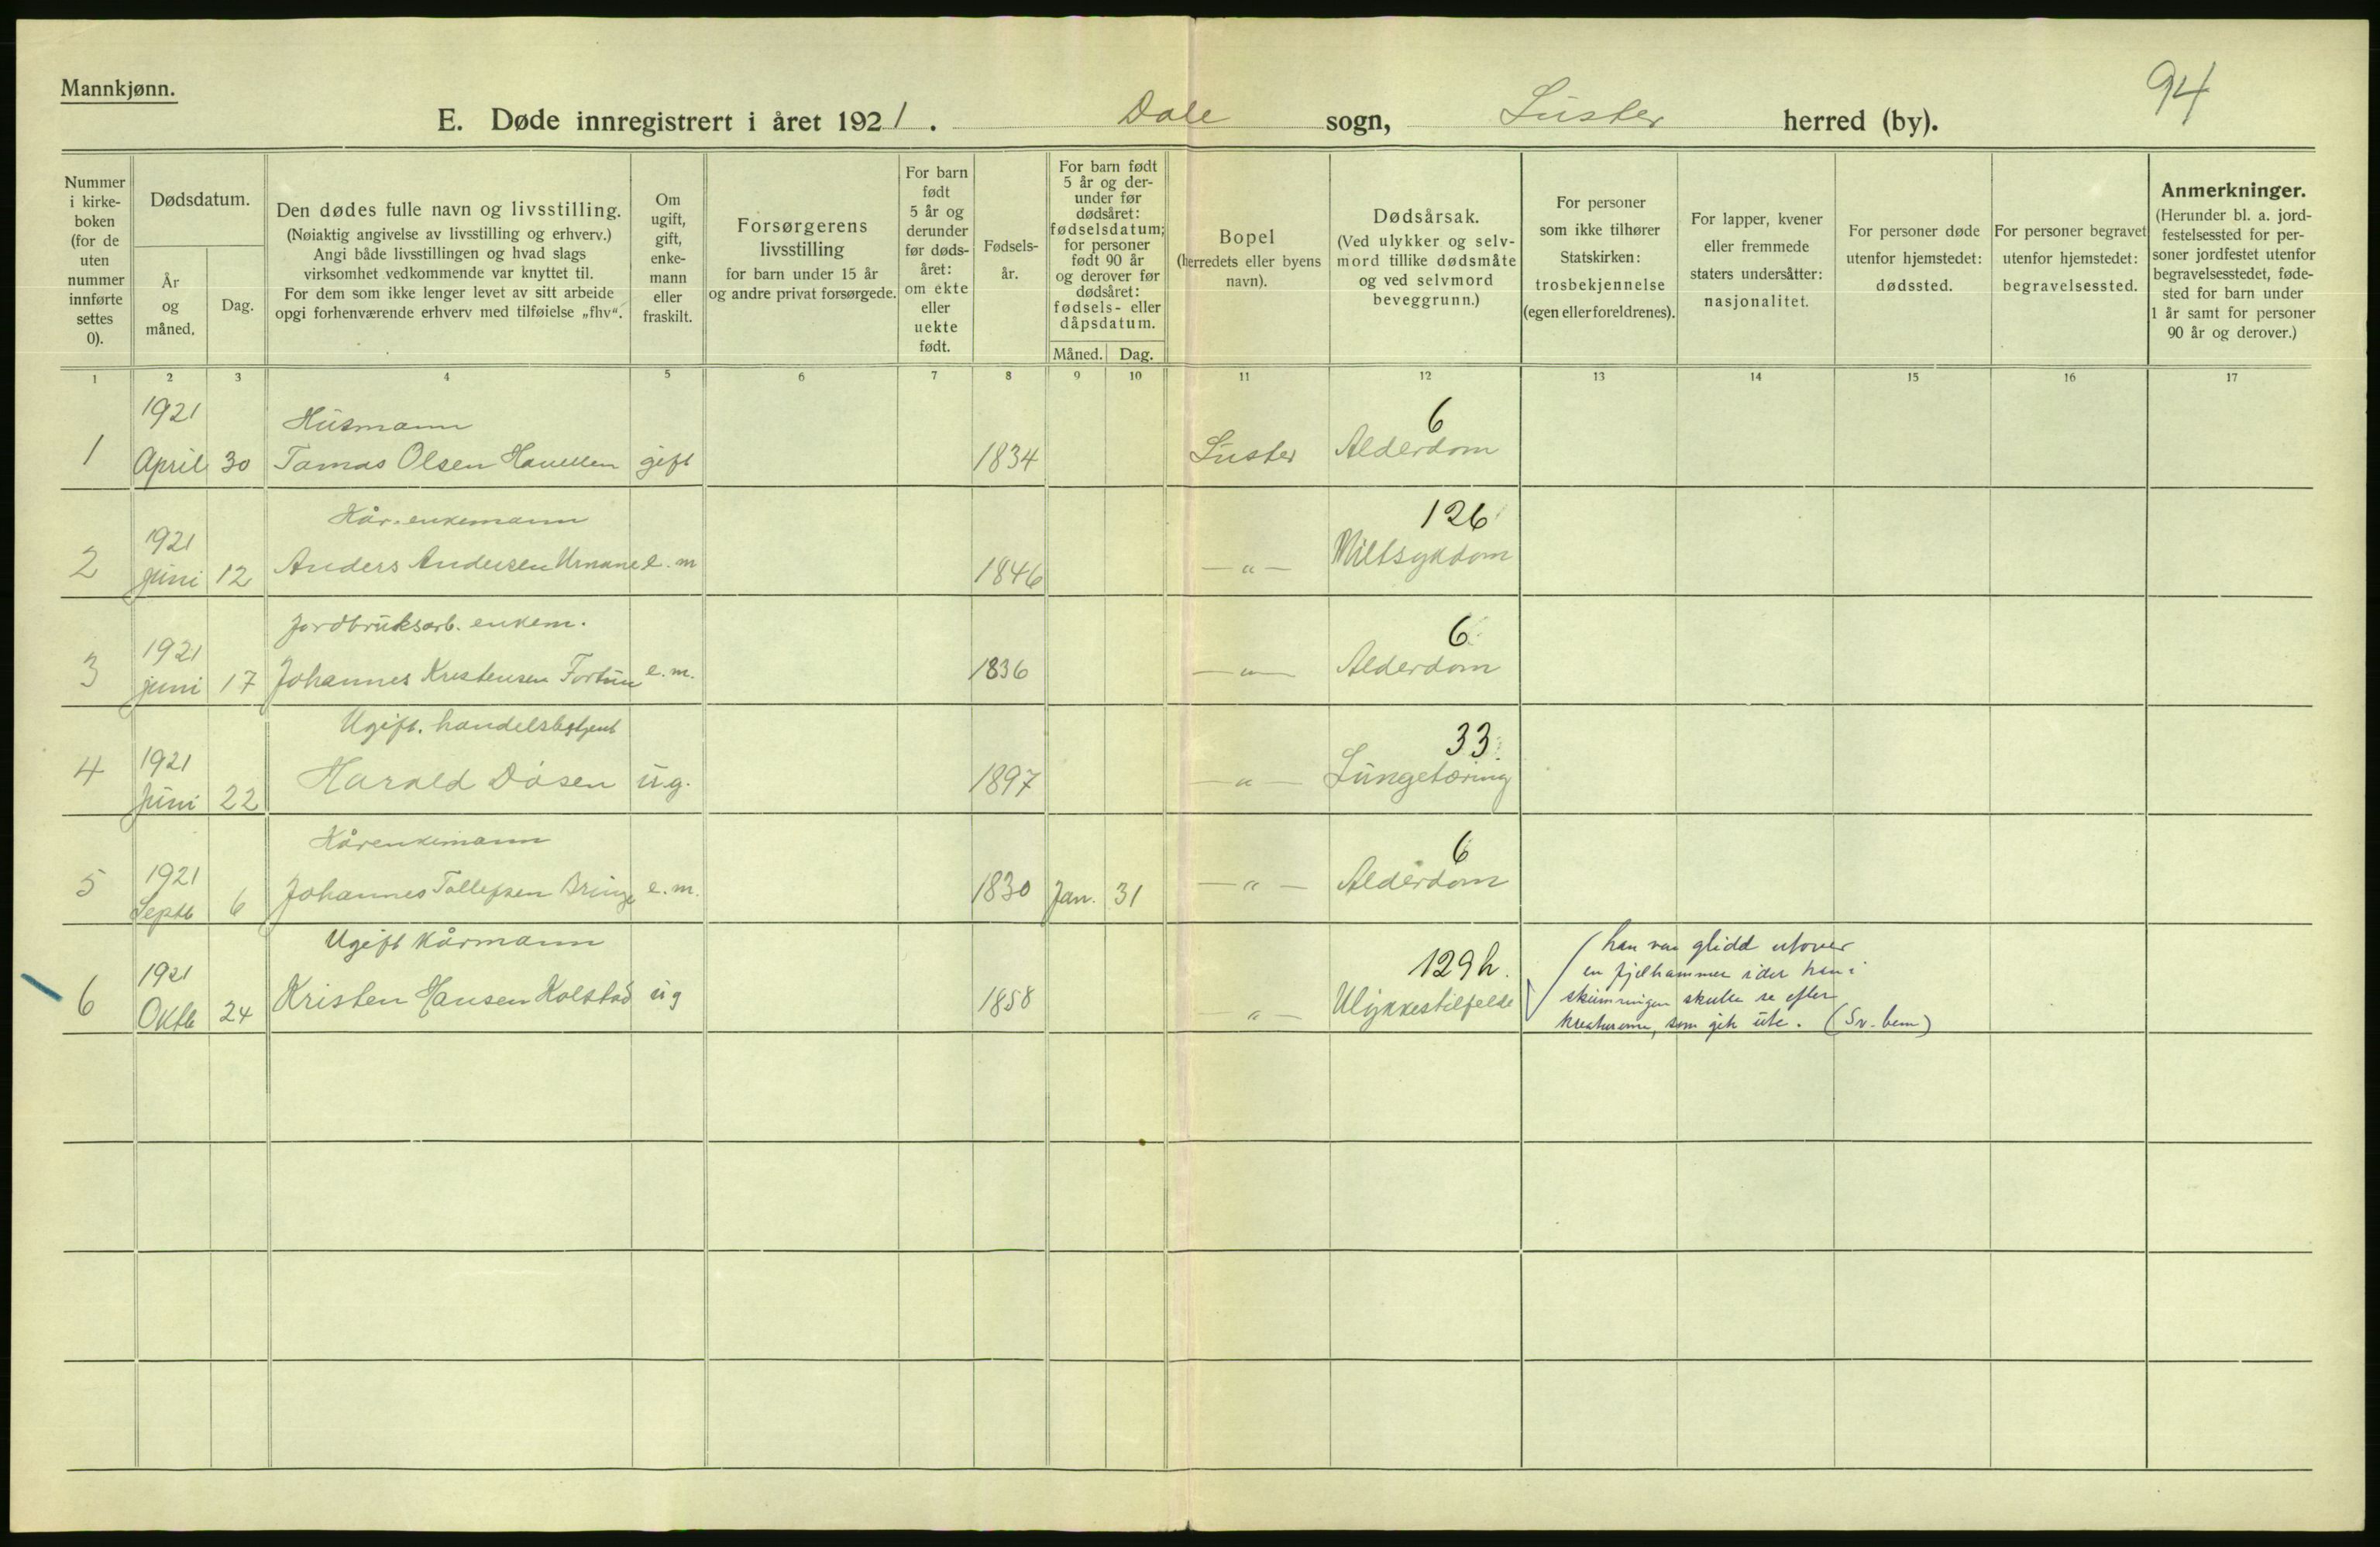 Mannkjønn.
94
E. Døde innregistrert i året 1921. Dale sogn, Luster herred (by).
Nummer i kirkeboken (for de uten nummer innførte settes 0).
Dødsdatum.
År og måned.
Dag.
Den dødes fulle navn og livsstilling.
(Nøiaktig angivelse av livsstilling og erhverv.)
Angi både livsstillingen og hvad slags
virksomhet vedkommende var knyttet til.
For dem som ikke lenger levet av sitt arbeide
opgi forhenværende erhverv med tilføielse „fhv“.
Om ugift, gift, enkemann eller fraskilt.
Forsørgerens
livsstilling
for barn under 15 år
og andre privat forsørgede.
For barn født 5 år og derunder før dødsåret: om ekte eller uekte født.
Fødselsår.
For barn født 5 år og derunder før dødsåret: fødselsdatum; for personer født 90 år og derover før dødsåret: fødsels- eller dåpsdatum.
Måned. Dag.
Bopel
(herredets eller byens
navn).
Dødsårsak.
(Ved ulykker og selvmord tillike dødsmåte
og ved selvmord
beveggrunn.)
For personer
som ikke tilhører
Statskirken:
trosbekjennelse
(egen eller foreldrenes).
For lapper, kvener
eller fremmede
staters undersåtter:
nasjonalitet.
For personer døde
utenfor hjemstedet:
dødssted.
For personer begravet
utenfor hjemstedet:
begravelsessted.
Anmerkninger.
(Herunder bl. a. jordfestelsessted for personer jordfestet utenfor
begravelsesstedet, fødested for barn under
1 år samt for personer
90 år og derover.)
1 2 3 4 5 6 7 8 9 10 11 12 13 14 15 16 17
1921 Husmann 6
1 April 30 Tomas Olsen gift 1834 Luster Alderdom
Kår. enkemann 126
1921
2 juni 12 Anders Andersen e. m 1846 — „ — Miltsykdom
Jordbruksarb. enkem. 6
1921
3 juni 17 Johannes Kristensen Fortun e. m. 1836 — „ — Alderdom
Ugift. handelsbetjent 33
1921
4 Juni 22 Harald Døsen ug. 1897 — „ — Lungetæring
Kårenkemann 6
1921
5 Septb 6 Johannes Tollefsen Bringe e. m. 1830 Jan. 31 — „ — Alderdom
Ugift kårmann 129h.
1921
6 Oktb 24 Kristen Hansen Kolstad ug 1858 — „ — Ulykkestilfelde
(han var glidd utover
en fjelhammer idet han i
skumringen skulle se efter
kreaturene, som gik ute. (Sv. bem)